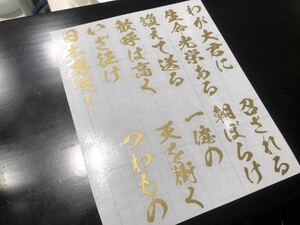 わが大君に 召されたる
生命光栄ある 朝ぼらけ
讃えて送る 一億の
歓呼は高く 天を衝く
いざ征け つわもの
日本男児!